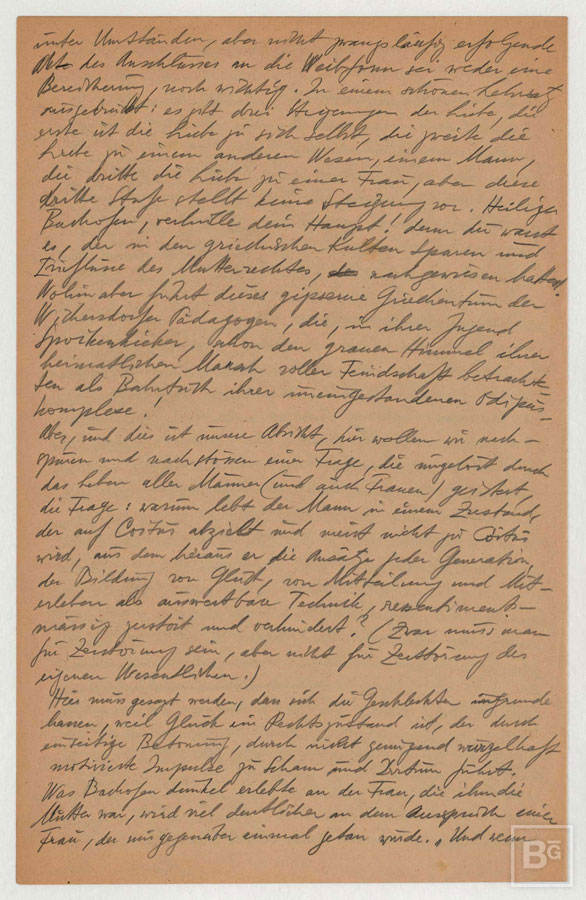 unter Umständen, aber nicht zwangsläufig erfolgende
Akt des Anschlusses an die Weibform sei weder eine
Bereicherung, noch wichtig. In einem schönen Lehrsatz
ausgedrückt: es gibt drei Steigerungen der Liebe, die
erste ist die Liebe zu sich selbst, die zweite die
Liebe zu einem anderen Wesen, einem Mann,
die dritte die Liebe zu einer Frau, aber diese
dritte Stufe stellt keine Steigerung vor. Heiliger
Bachofen, verhülle dein Haupt! denn du warst
es, der in den griechischen Kulten Spuren und
Einflüsse des Mutterrechtes, nachgewiesen hattest.
Wohin aber führt dieses gipserne Griechentum der
Wickersdorfer Pädagogen, die, in ihrer Jugend
schon den grauen Himmel ihrer
heimatlichen Mark voller Feindschaft betrachte-
ten als Bahrtuch ihrer uneingestandenen Ödipus-
komplexe!
Aber, und dies ist unsere Absicht, hier wollen wir nach-
spüren und nachstossen einer Frage, die ungelöst durch
das Leben aller Männer (und auch Frauen) geistert,
die Frage: warum lebt der Mann in einem Zustand,
der auf Coitus abzielt und meist nicht zu Coitus
wird, aus dem heraus er die Ansätze jeder Generation,
der Bildung von Glück, von Mitteilung und Mit-
erleben als auswertbare Technik, ressentiments-
mässig zerstört und verhindert? (Zwar muss man
für Zerstörung sein, aber nicht für Zerstörung des
eigenen Wesentlichen.)
Hier muss gesagt werden, dass sich die Geschlechter im Grunde
hassen, weil Glück ein Rechtszustand ist, der durch
einseitige Betonung, durch nicht genügend wurzelhaft
motivierte Impulse zu Scham und Irrtum führt.
Was Bachofen dunkel erlebte an der Frau, die ihm die
Mutter war, wird viel deutlicher an dem Ausspruch einer
Frau, der uns gegenüber einmal getan wurde. „Und wenn
BG